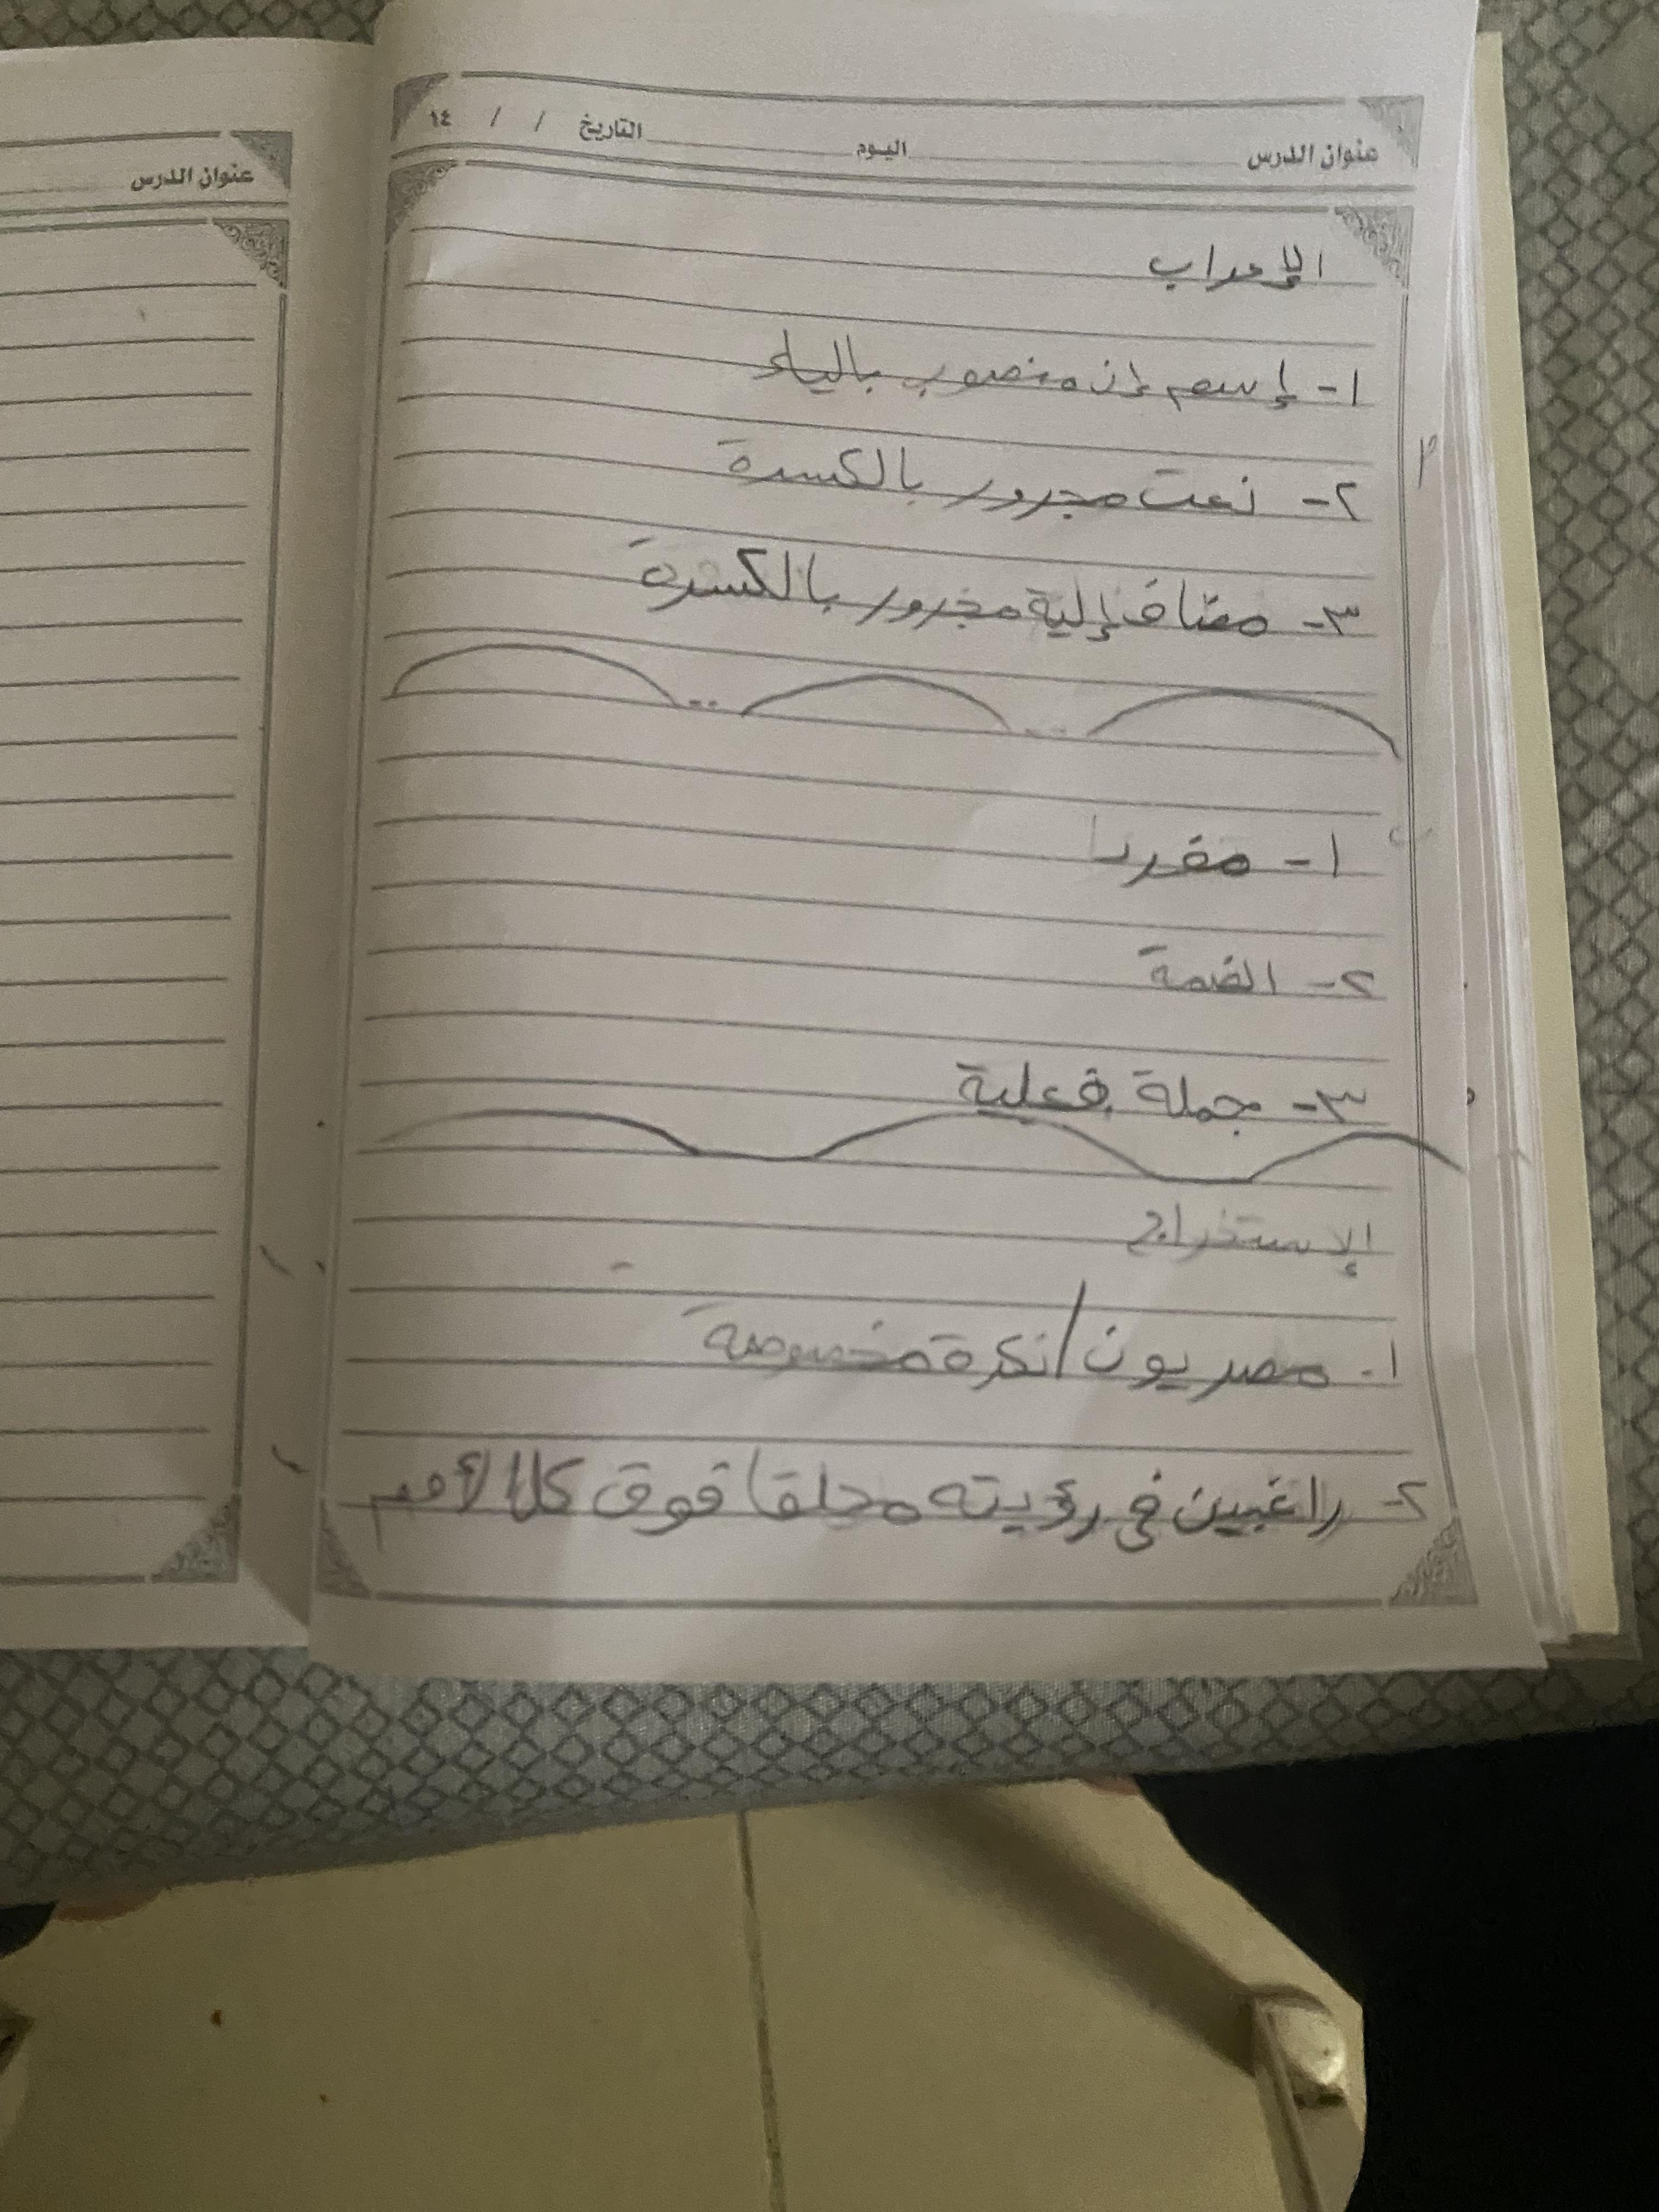 عنوان الدرس اليوم التاريخ / / ١٤
الإعراب
١- إسم إن منصوب بالياء
٢- نعت مجرور بالكسرة
٣- مضاف إلية مجرور بالكسرة
١- مفردا
٢- الضمة
٣- جملة فعلية
الإستخراج
١- مصريون / نكرة مخصوصة
٢- راغبين في رؤيته محلقا فوق كل الأمم
عنوان الدرس